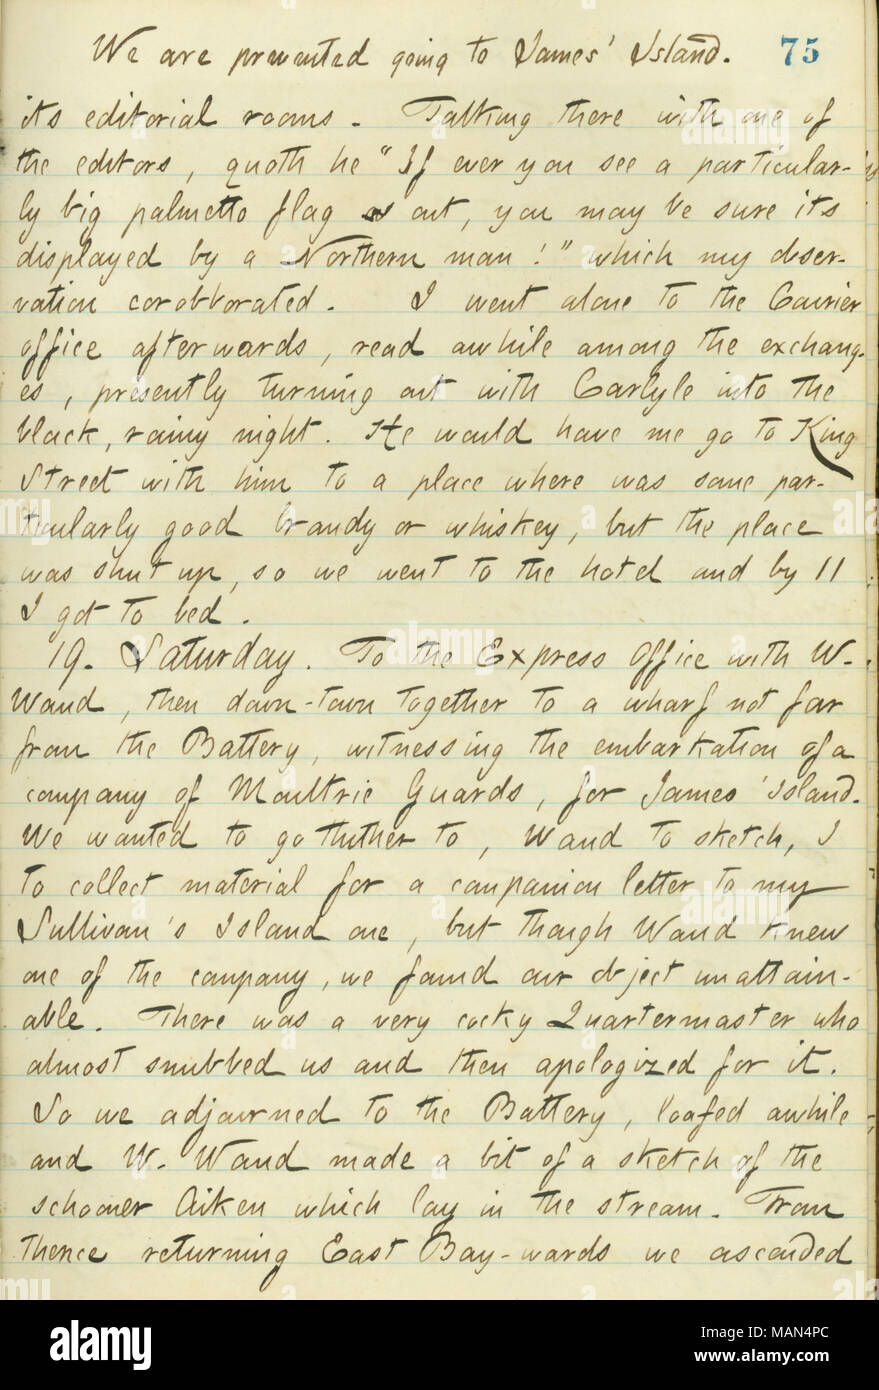 We are prevented going to James' Island. 75
its editorial rooms. Talking there with one of
the editors, quoth he "If ever you see a particular-
ly big palmetto flag out, you may be sure its
displayed by a Northern man!" which my obser-
vation corobborated. I went alone to the Courier
office afterwards, read awhile among the exchang-
es, presently turning out with Carlyle into the
black, rainy night. He would have me go to King
Street with him to a place where was some par-
ticularly good brandy or whiskey, but the place
was shut up, so we went to the hotel and by 11
I got to bed.
19. Saturday. To the Express Office with W.
Waud, then down-town together to a wharf not far
from the Battery, witnessing the embarkation of a
company of Moultrie Guards, for James' Island.
We wanted to go thither to, Waud to sketch, I
to collect material for a companion letter to my
Sullivan's Island one, but though Waud knew
one of the company, we found our object unattain-
able. There was a very cocky Quartermaster who
almost snubbed us and then apologized for it.
So we adjourned to the Battery, loafed awhile
and W. Waud made a bit of a sketch of the
schooner Aiken which lay in the stream. From
thence returning East Bay-wards we ascended
alamy
Image ID: MAN4PC
www.alamy.com